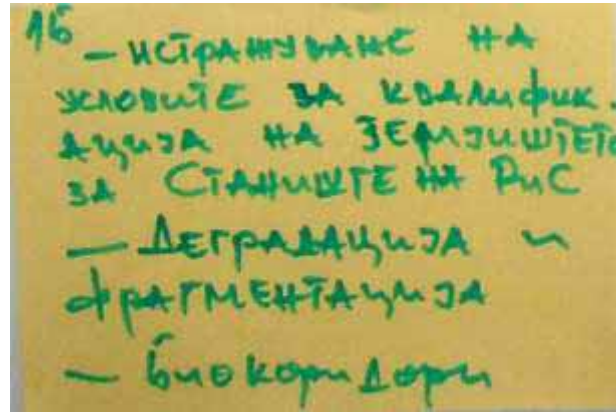 16
– ИСТРАЖУВАЊЕ НА
УСЛОВИТЕ ЗА КВАЛИФИК
АЦИЈА НА ЗЕМЈИШТЕТО
ЗА СТАНИШТЕ НА РИС
– ДЕГРАДАЦИЈА И
ФРАГМЕНТАЦИЈА
– Биокоридори